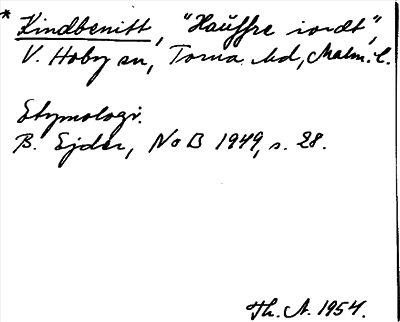 * Kindbenitt, "Hauffre iordt",
V. Hoby sn, Torna hd, Malm. l.
Etymologi.
B. Ejder, NoB 1949, s. 28.
Th. A. 1954.